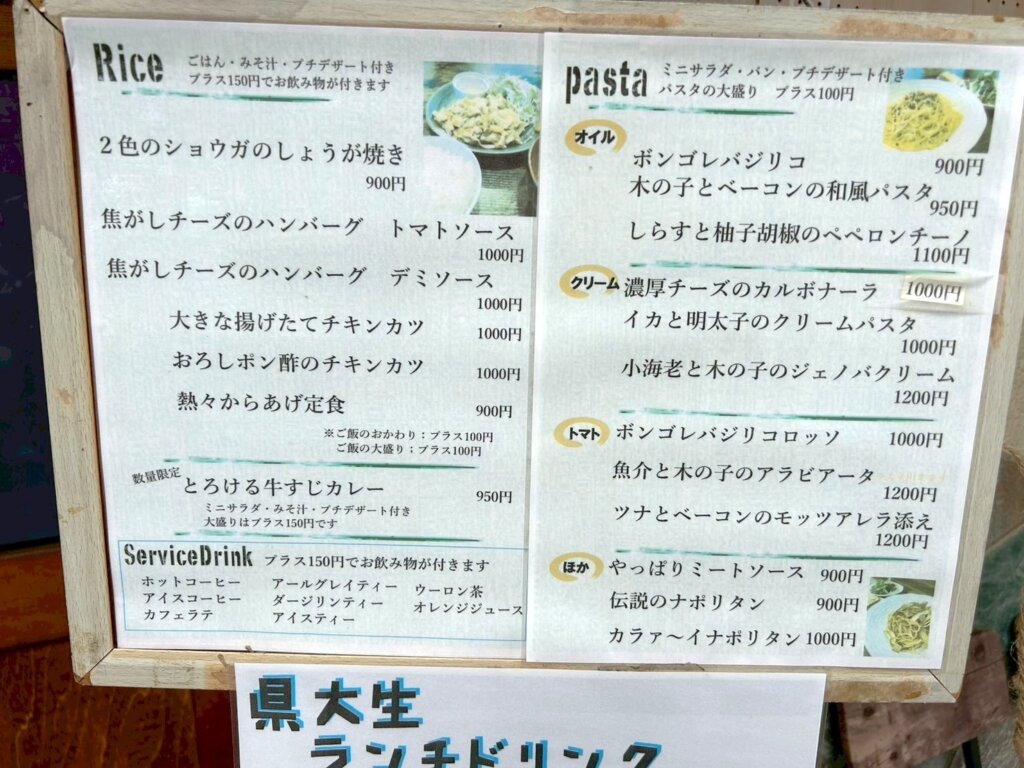 Rice
ごはん・みそ汁・プチデザート付き
プラス150円でお飲み物が付きます
2色のショウガのしょうが焼き
900円
焦がしチーズのハンバーグ　トマトソース
1000円
焦がしチーズのハンバーグ　デミソース
1000円
大きな揚げたてチキンカツ
1000円
おろしポン酢のチキンカツ
1000円
熱々からあげ定食
900円
※ご飯のおかわり；プラス100円
ご飯の大盛り；プラス100円
数量限定
とろける牛すじカレー
950円
ミニサラダ・みそ汁・プチデザート付き
大盛りはプラス150円です
ServiceDrink プラス150円でお飲み物が付きます
ホットコーヒー
アイスコーヒー
カフェラテ
アールグレイティー
ダージリンティー
アイスティー
ウーロン茶
オレンジジュース
pasta
ミニサラダ・パン・プチデザート付き
パスタの大盛り　プラス100円
オイル
ボンゴレバジリコ
900円
木の子とベーコンの和風パスタ
950円
しらすと柚子胡椒のペペロンチーノ
1100円
クリーム
濃厚チーズのカルボナーラ
1000円
イカと明太子のクリームパスタ
1000円
小海老と木の子のジェノバクリーム
1200円
トマト
ボンゴレバジリコロッソ
1000円
魚介と木の子のアラビアータ
1200円
ツナとベーコンのモッツアレラ添え
1200円
ほか
やっぱりミートソース
900円
伝説のナポリタン
900円
カラァ～イナポリタン
1000円
県大生
ランチドリンク